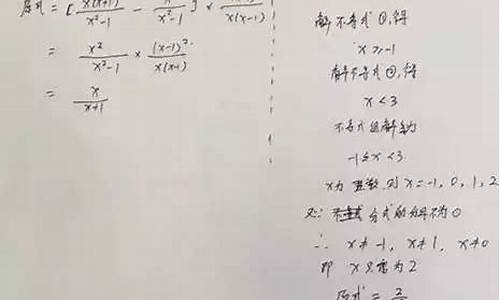 原式 = [ x(x+1)/x²-1 - x/x²-1 ] ×
= x²/x²-1 × (x-1)²/x(x-1)
= x/x+1
解不等式①,得
x ≥ -1
解不等式②,得
x < 3
不等式组解为
-1 ≤ x < 3
x为整数,则 x = -1, 0, 1, 2
又∵ 分式的分母不为0
∴ x ≠ -1, x ≠ 1, x ≠ 0
即 x 只能为 2
原式 = 2